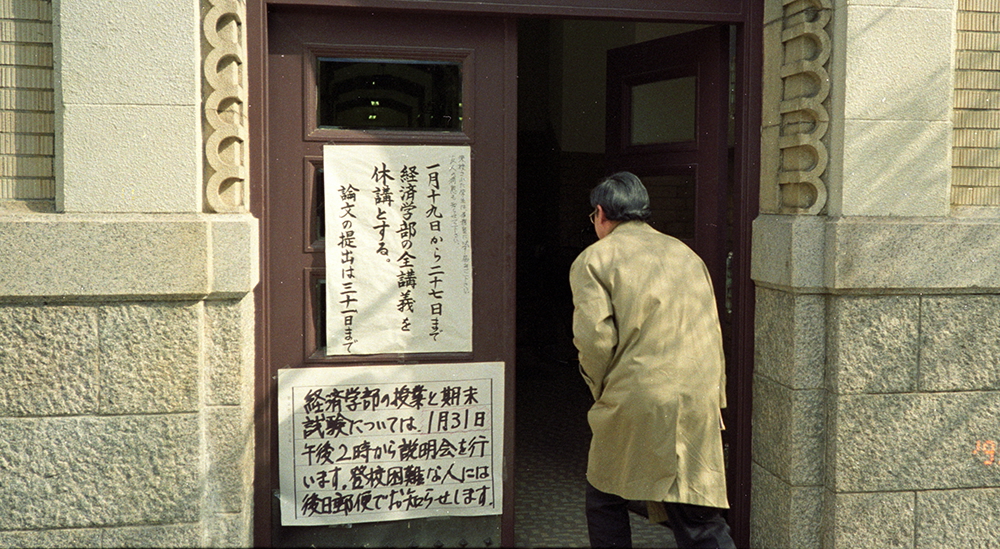 一月十九日から二十七日まで
経済学部の全講義を
休講とする。
論文の提出は三十一日まで
経済学部の授業と期末
試験については、1月31日
午後2時から説明会を行
います。登校困難な人には
後日郵便でお知らせします.